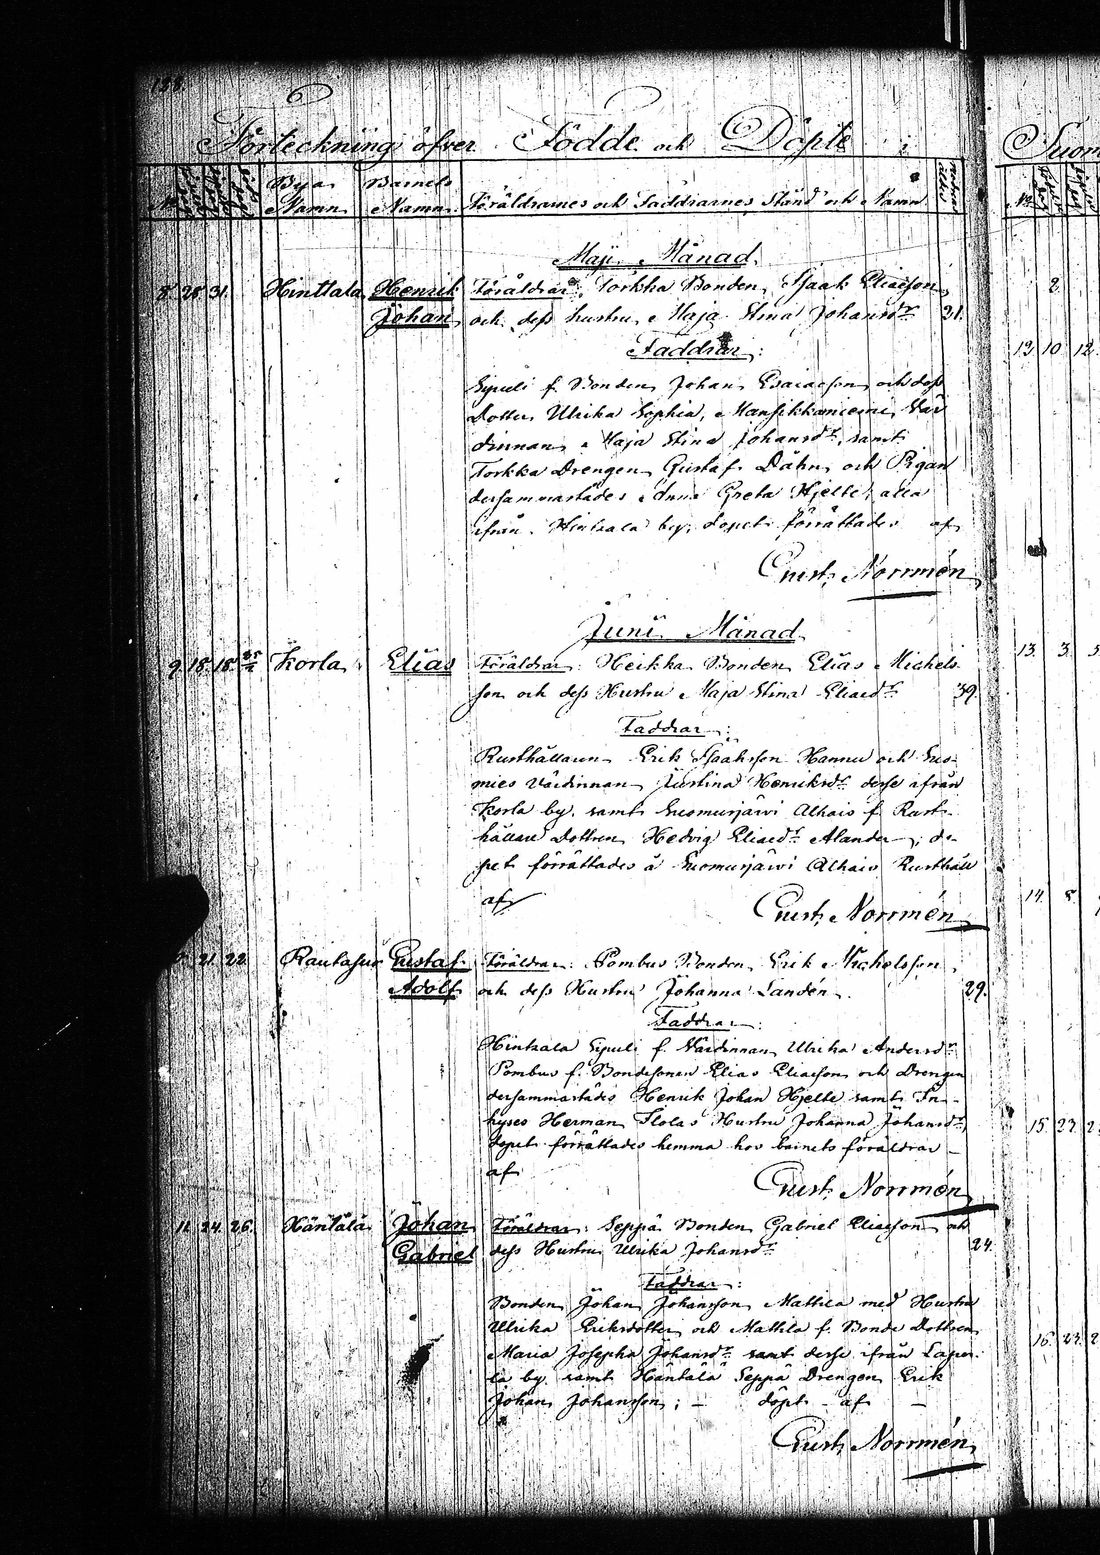 138.
Förteckning öfver Födde och Döpte i
No Bya Namn Barnets Namn Föräldrarnes och Faddrarnes Stånd och Namn
Maji Månad.
8. 28. 31. Hinttala Henrik Föräldrar: Torkka Bonden, Isaak Eliasson
Johan och dess hustru, Maja Stina Johansdr 21.
Faddrar:
Sipuli f. Bonden, Johan, Esaiasson, och dess
Dotter Ulrika Sophia, Mansikkaniemi, Vär
dinnan, Maja Stina Johansdr, samt
Torkka Drengen, Gustaf Dähn, och Pigan
dersammastädes Anna Greta Hjelte, alla
ifrån Hintsala by, dopet förrättades af
Gust. Norrmén
Juni Månad
9. 18. 18. Korla Elias Föräldrar: Heikka Bonden Elias Michels
son och dess Hustru Maja Stina Eliasdr 39.
Faddrar:
Rusthållaren Erik Isaksson Hannu och Suo-
mies Värdinnan, Justina Henriksdr desse ifrån
Korla by, samt Suomusjärvi Alhais f. Rust-
hållare Dottren Hedvig Eliasdr Alander; do-
pet förrättades å Suomusjärvi Alhais Rusthåll
af
Gust. Norrmén
21. 22. Rautasuo Gustaf Föräldrar: Pombus Bonden, Erik Michelsson,
Adolf och dess Hustru Johanna Landén. 29.
Faddrar:
Hintsala Sipuli f. Värdinnan Ulrika Andersdr
Pombus f. Bondesonen Elias Eliasson och Drengen
dersammastädes Henrik Johan Hjelte samt In-
hyses Herman Hustru Johanna Johansdr
dopet förrättades hemma hos barnets föräldrar
af
Gust. Norrmén
11. 24. 26. Häntälä Johan Föräldrar: Seppä Bonden Gabriel Eliasson och
Gabriel dess Hustru Ulrika Johansdr 24.
Faddrar:
Bonden Johan Johansson Mattila med Hustru
Ulrika Eriksdotter och Mattila f. Bonde Dottren
Maria Josepha Johansdr samt desse ifrån Laper-
la by samt Häntälä Seppä Drengen Erik
Johan Johansson; – Döpt af –
Gust. Norrmén